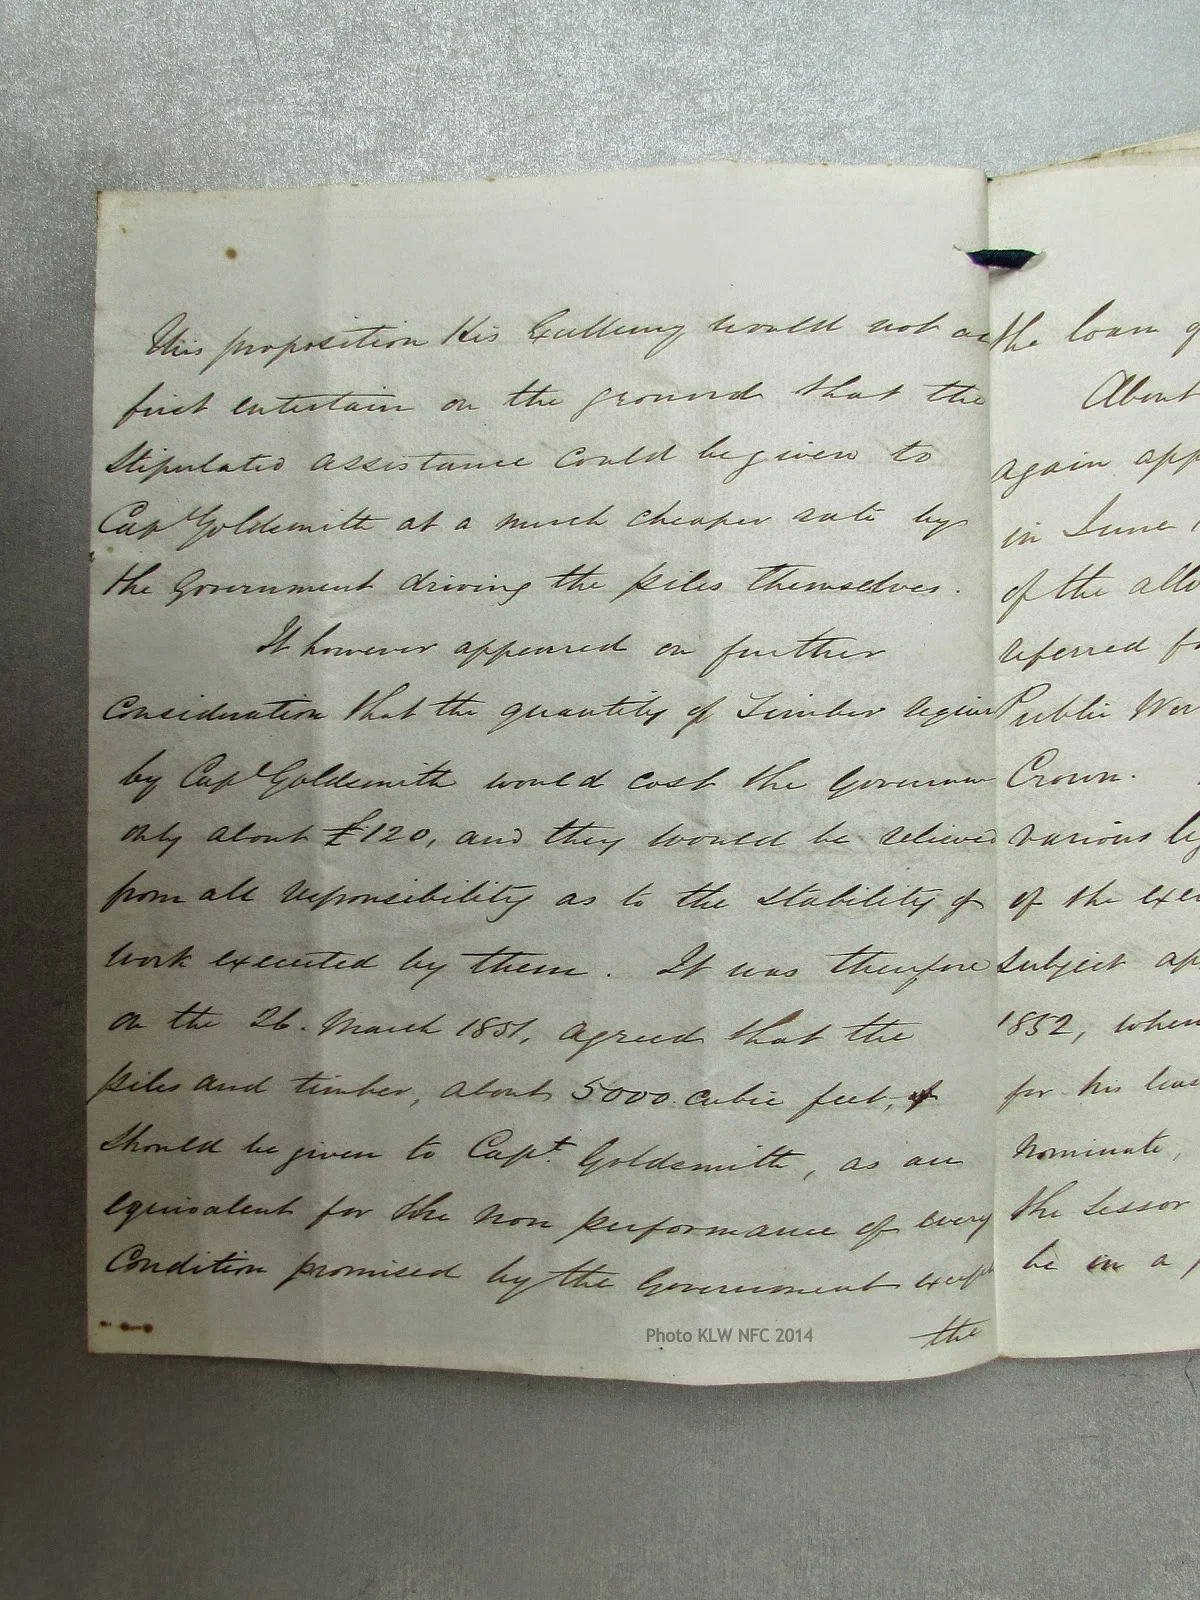 This proposition His Excellency would not at
first entertain on the ground that the
stipulated assistance could be given to
Capt Goldsmith at a much cheaper rate by
the Government driving the piles themselves.
It however appeared on further
consideration that the quantity of Timber requir
by Capt Goldsmith would cost the Governm
only about £120, and they would be relieved
from all responsibility as to the stability of
work executed by them. It was therefore
on the 26. March 1851, agreed that the
piles and timber, about 5000 cubic feet,
should be given to Capt. Goldsmith, as an
equivalent for the non performance of every
Condition promised by the Government except
the
Photo KLW NFC 2014
the loan
About
again app
in June
of the
referred
Public Wor
Crown.
various
of the
subject
1852, when
for his
nominate,
the Lessor
be in a